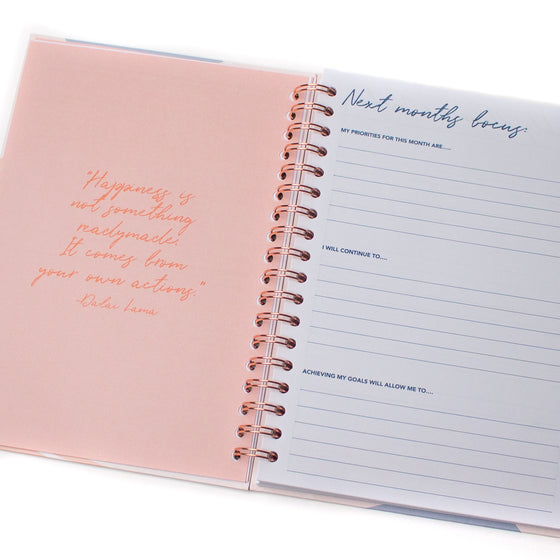 "Happiness is
not something
readymade.
It comes from
your own actions."
-Dalai Lama
Next months focus:
MY PRIORITIES FOR THIS MONTH ARE....
I WILL CONTINUE TO....
ACHIEVING MY GOALS WILL ALLOW ME TO....